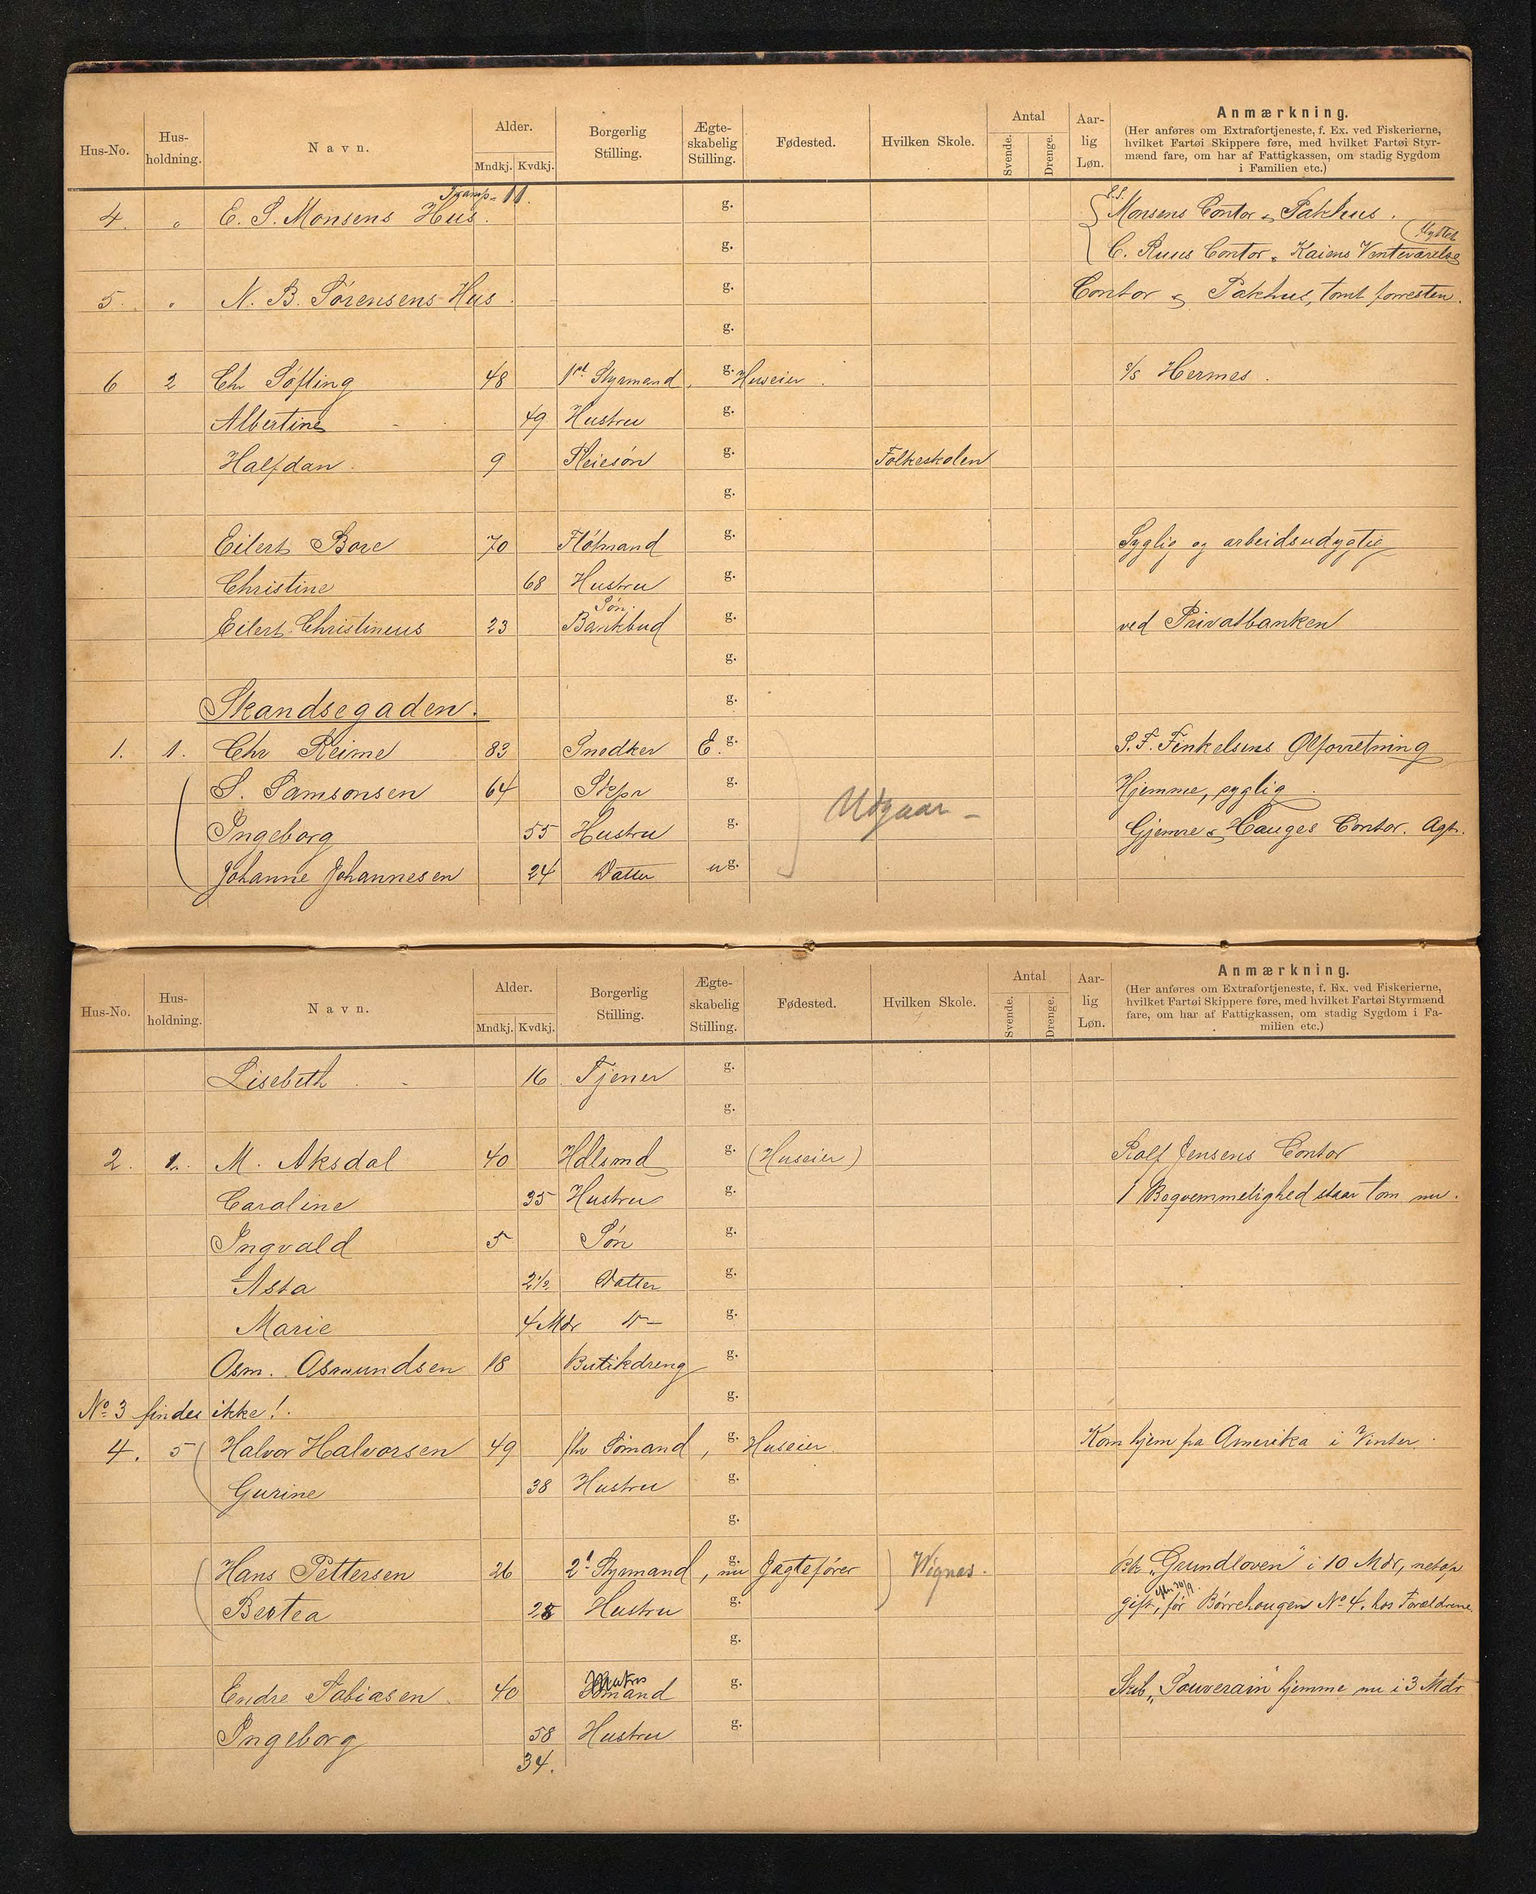 Hus-No. Hus-holdning. Navn. Alder. Mndkj. Kvdkj. Borgerlig Stilling. Ægte-skabelig Stilling. Fødested. Hvilken Skole. Antal Svende. Drenge. Aar-lig Løn. Anmærkning.
(Her anføres om Extrafortjeneste, f. Ex. ved Fiskerierne,
hvilket Fartøi Skippere føre, med hvilket Fartøi Styr-
mænd fare, om har af Fattigkassen, om stadig Sygdom
i Familien etc.)
4. " E. S. Monsens Hus. g. Monsens Contor & Pakhus.
g. C. Ruus Contor & Kaiens Venteværelse
5. " N. B. Sørensens Hus. g. Contor & Pakhus, tomt forresten.
g.
6 2 Chr Søfting 48 1st Styrmand, g. Huseier. s/s Hermes.
Albertine 49 Hustru g.
Halfdan 9 Pleiesøn g. Folkeskolen
g.
Eilert Bore 70 Fløtmand g. Syglig og arbeidsudygtig
Christine 68 Hustru g.
Søn.
Eilert Christineus 23 Bankbud g. ved Privatbanken
g.
Skandsegaden. g.
1. 1. Chr Reime 83 Snedker E. g. S. F. Finkelsens Ølforretning
S. Samsonsen 64 Skpr g. Hjemme, syglig.
Udgaar –
Ingeborg 55 Hustru g. Gjemre & Hauges Contor. Agt.
Johanne Johannesen 24 Datter u g.
Hus-No. Hus-holdning. Navn. Alder. Mndkj. Kvdkj. Borgerlig Stilling. Ægte-skabelig Stilling. Fødested. Hvilken Skole. Antal Svende. Drenge. Aar-lig Løn. Anmærkning.
(Her anføres om Extrafortjeneste, f. Ex. ved Fiskerierne,
hvilket Fartøi Skippere føre, med hvilket Fartøi Styrmænd
fare, om har af Fattigkassen, om stadig Sygdom i Fa-
milien etc.)
Lisebeth 16 Tjener g.
g.
2. 1. M. Aksdal 40 Hdlsmd g. (Huseier) Rolf Jensens Contor
Caroline 35 Hustru g. 1 Beqvemmelighed staar tom nu.
Ingvald 5 Søn g.
Asta 2½ Datter g.
Marie 4 Mdr g.
Osm. Osmundsen 18 Butikdreng g.
No 3 findes ikke! g.
4. 5 Halvor Halvorsen 49 fhv Sømand, g. Huseier. Kom hjem fra Amerika i Vinter.
Gurine 38 Hustru g.
g.
Hans Pettersen 26 2d Styrmand, g. nu Jagtefører Vignæs. Bk "Grundloven" i 10 Mdr, netop
Bertea 28 Hustru g. gift, før Børrehougen No 4, hos Forældrene.
g.
Endre Tobiasen 40 Matros g. Skib "Souverain" hjemme nu i 3 Mdr
Ingeborg 58 Hustru g.
34.